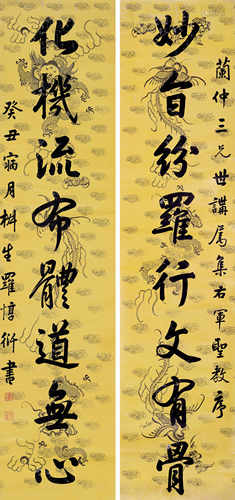 蘭仲三兄世講屬集右軍聖教序
妙旨紛羅行文有骨
化機流布體道無心
癸丑寎月椒生羅惇衍書